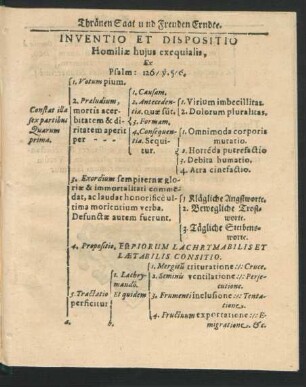 Thränen Saat und Freuden Erndte.
INVENTIO ET DISPOSITIO
Homiliæ hujus exequialis,
Ex
Psalm: 126/℣.5/6.
1. Votum pium.
Constat illa
sex partibus
Quarum
prima.
2. Præludium,
mortis acer-
bitatem & di-
ritatem aperit
per
1. Causam.
2. Anteceden-
tia. quæ sūt.
1. Virium imbecillitas.
2. Dolorum pluralitas.
3. Formam.
4. Consequen-
tia. Sequi-
tur.
1. Omnimoda corporis
mutatio.
2. Horrēda putrefactio
3. Debita humatio.
4. Atra cinefactio.
3. Exordium sempiternæ glo-
riæ & immortalitati commē-
dat, ac laudat honorificè ul-
tima morientium verba.
Defunctæ autem fuerunt.
1. Klägliche Angstworte.
2. Bewegliche Trost-
worte.
3. Tägliche Sterbens-
worte.
4. Propositio, PIORUM LACHRYMABILIS ET
LÆTABILIS CONSITIO.
5. Tractatio
perficitur
1. Lachry-
mandò.
Et quidem
1. Mergitis trituratione ://: Cruce.
2. Seminis ventilatione ://: Perse-
cutione.
3. Frumenti inclusione ://: Tenta-
tione.
4. Fructuum exportatione ://: E-
migratione. &c.
a. b.